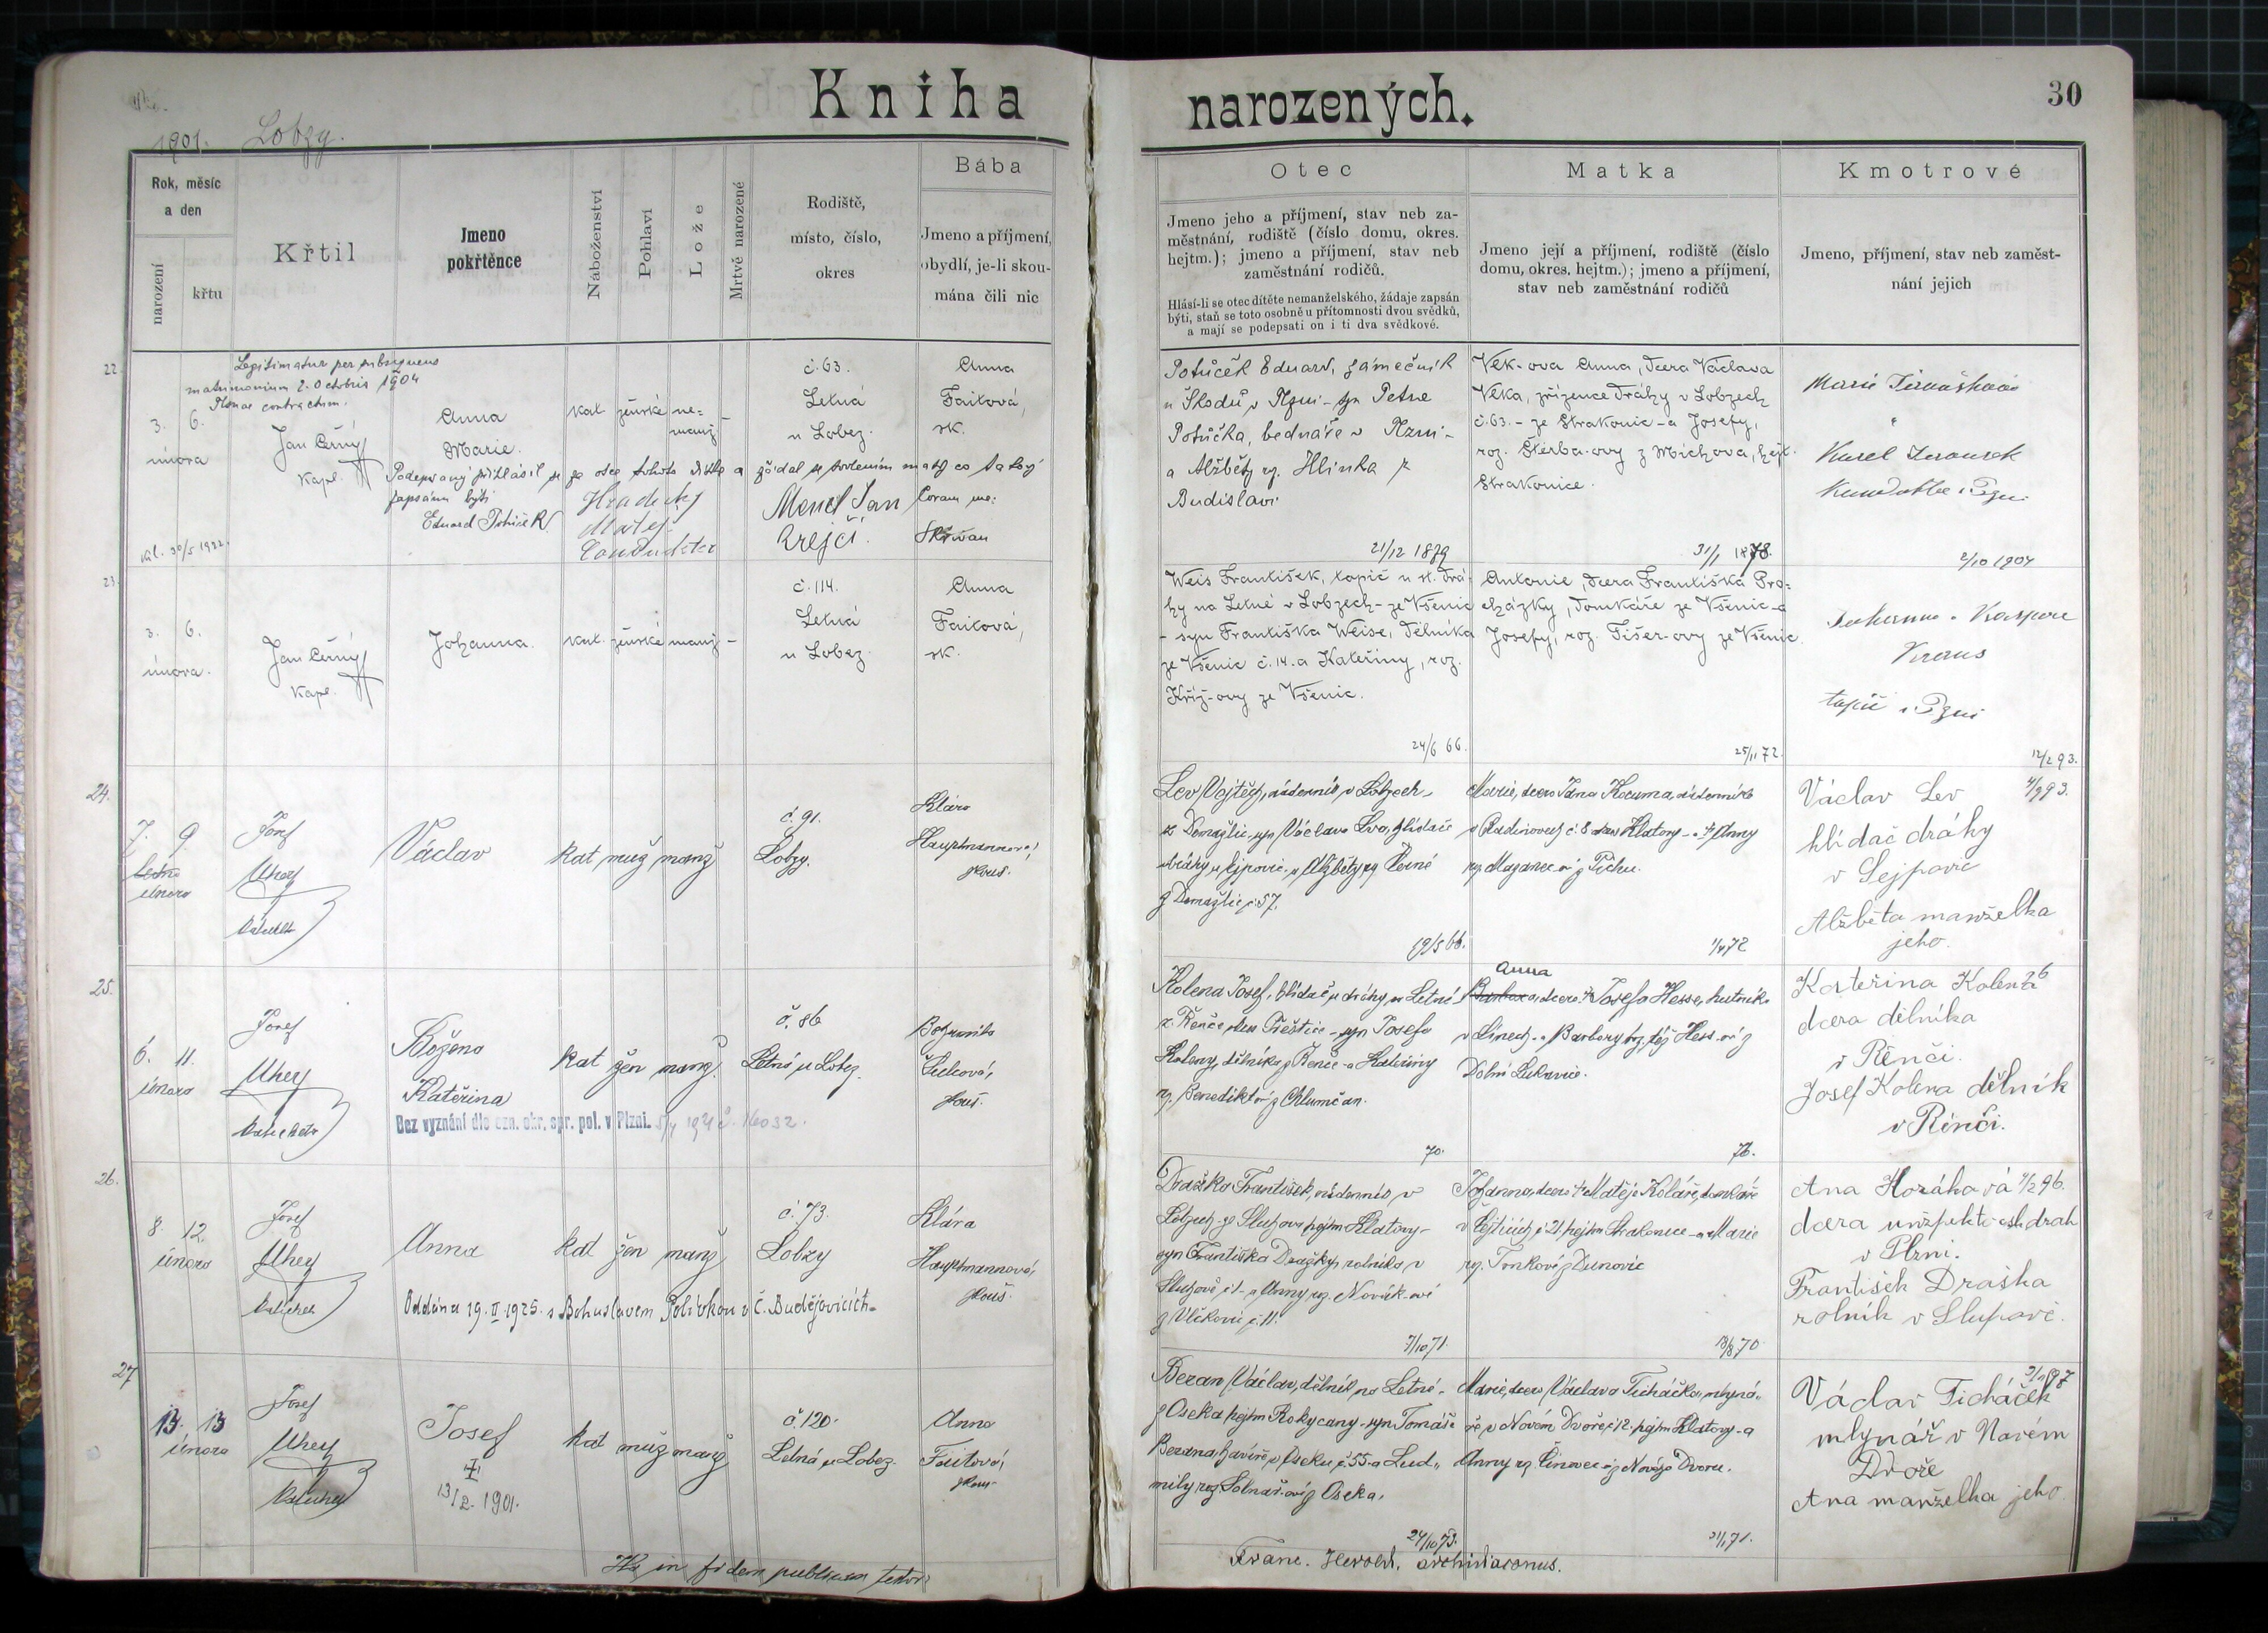 Kniha narozených.
30
1901. Lobzy.
Rok, měsíc a den
narození
křtu
Křtil
Jmeno pokřtěnce
Náboženství
Pohlaví
Lože
Mrtvě narozené
Rodiště,
místo, číslo,
okres
Bába
Jmeno a příjmení,
obydlí, je-li skou-
mána čili nic
Otec
Jmeno jeho a příjmení, stav neb za-
městnání, rodiště (číslo domu, okres.
hejtm.); jmeno a příjmení, stav neb
zaměstnání rodičů.
Hlásí-li se otec dítěte nemanželského, žádaje zapsán
býti, staň se toto osobně u přítomnosti dvou svědků,
a mají se podepsati on i ti dva svědkové.
Matka
Jmeno její a příjmení, rodiště (číslo
domu, okres. hejtm.); jmeno a příjmení,
stav neb zaměstnání rodičů
Kmotrové
Jmeno, příjmení, stav neb zaměst-
nání jejich
22.
Legitimatur per subsequens
matrimonium 2. Octobris 1904
Plsnae contractum.
3. 6.
února
Jan Černý
kapl.
Anna
Marie.
kat ženské ne=
manž.
č. 63.
Letná
u Lobez.
Anna
Faitová,
sk.
Podepsaný přihlásil se za otce tohoto dítka a žádal se svolením matky co takový
zapsánu býti
Eduard Potůček
Hradecký
Matěj
Conducteur
Mencl Jan
Krejčí.
Coram me:
Skřivan
30/5 1922.
Potůček Eduard, zámečník
u Škodů v Plzni - syn Petra
Potůčka, bednáře v Plzni -
a Alžběty roz. Hlinka z
Budislavi
21/12 1879
Vlk-ova Anna, dcera Václava
Vlka, zřízence dráhy v Lobzech
č. 63. - ze Strakonic - a Josefy,
roz. Štěrba-ovy z Míchova, hejt.
Strakonice.
31/1 1878.
Marie
Karel
2/10 1904
23.
3. 6.
února.
Jan Černý
kapl.
Johanna.
kat. ženské manž -
č. 114.
Letná
u Lobez.
Anna
Faitová,
sk.
Weis František, topič u st. drá-
hy na Letné v Lobzech - ze Všenic
- syn Františka Weise, dělníka
ze Všenic č. 14. a Kateřiny, roz.
Kříž-ovy ze Všenic.
24/6 66.
Antonie, dcera Františka Pro-
cházky, domkáře ze Všenic - a
Josefy, roz. Tišer-ovy ze Všenic.
25/11 72.
Kraus
topič v Plzni
12/2 93.
24.
7. 9
února
Josef
Uhey
katecheta
Václav
kat muž manž
č. 91.
Lobzy.
Klára
Hauptmannová,
zkouš.
Lev Vojtěch, nádenník v Lobzech -
z Domažlic, syn Václava Lva, hlídače
dráhy u Ejpovic, a Alžběty roz. Černé
z Domažlic č. 57.
19/5 66.
Marie, dcera Jana Kocuma, nádenníka
v Radinovech č. 8 okres Klatovy - a † Anny
roz. Maganec-ové z Tichu.
1/4 72
Václav Lev
hlídač dráhy
v Sejpovic
Alžběta manželka
jeho.
4/9 93.
25.
6. 11.
února
Josef
Uhey
katecheta
Božena
Kateřina
kat žen manž.
č. 86
Letná u Lobez.
zkouš.
Bez vyznání dle ozn. okr. spr. pol. v Plzni. 5/4 1921 č. 16032.
Kolena Josef, hlídač u dráhy na Letné
z Řenče okres Přeštice - syn Josefa
Koleny, dělníka z Řenče - a Kateřiny
roz. Benedikt-ové z Chlumčan.
70.
Anna
Barbora, dcera † Josefa Hesse, hutníka
v Línech - a Barbory roz. též Hess-ové z
Dolní Lukavice.
76.
Kateřina Kolena
dcera dělníka
v Řenči.
Josef Kolena dělník
v Řenči.
26.
8. 12.
února
Josef
Uhey
katecheta
Anna
kat žen manž
č. 73.
Lobzy
Klára
Hauptmannová,
zkouš.
Oddána 19. II. 1925. s Bohuslavem Polívkou v Č. Budějovicích.
Dražka František, nádenník v
Lobzech - ze Slupova hejtm Klatovy -
syn Františka Dražky, rolníka v
Slupově č. 1 - a Anny roz. Novák-ové
z Vlčkovic č. 11.
7/10 71.
Johanna, dcera † Matěje Koláře, domkáře
v Lejčicích č. 21 hejtm Strakonice - a Marie
roz. Tonkové z Dunovic
13/8 70
Ana Horáková 4/2 96.
dcera unžpektr. st. drah
v Plzni.
František Draška
rolník v Slupově.
27
13. 13
února
Josef
Uhey
katecheta
Josef
†
13/2. 1901.
kat muž manž
č. 120.
Letná u Lobez.
Anna
Faitová,
zkouš.
Beran Václav, dělník na Letné -
z Oseka hejtm Rokycany - syn Tomáše
Berana, havíře v Oseku č. 55 - a Lud-
mily roz. Solnař-ové z Oseka.
24/10 73.
Marie, dcera Václava Ticháčka, mlyná-
ře v Novém Dvoře č. 12. hejtm Klatovy - a
Anny roz. Činovec-ové z Nového Dvora.
21/1 71.
Václav Ticháček
mlynář v Novém
Dvoře
Ana manželka jeho
in fidem publicam testor:
Franc. Herold, archidiaconus.